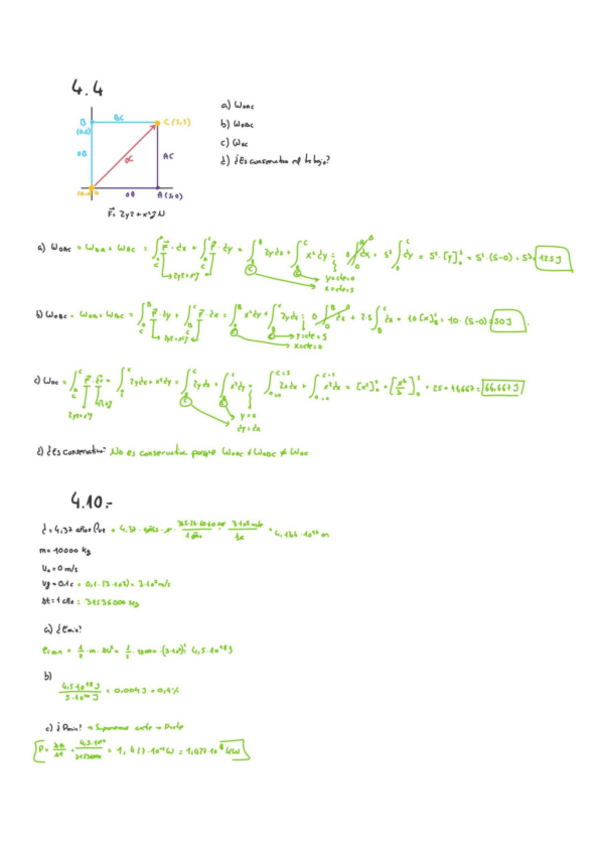 4.4
B BC C (5,5)
(0,5)
OB OC AC
OA A (5,0)
F = 2yi + x²j N
a) W OAC
b) W OBC
c) W OC
d) ¿Es conservativo el trabajo?
a) W OAC = W OA + W AC = ∫ F · dx + ∫ F · dy = ∫ 2y dx + ∫ x² dy = 5² ∫ dy = 5² [y] = 5² · (5-0) = 5³ = 125 J
2yi+x²j y=cte=0
x=cte=5
b) W OBC = W OB + W BC = ∫ F · dy + ∫ F · dx = ∫ x² dy + ∫ 2y dx = 2·5 ∫ dx = 10 [x] = 10 · (5-0) = 50 J
2yi+x²j y=cte=5
x=cte=0
c) W OC = ∫ F · dr = ∫ 2y dx + x² dy = ∫ 2y dx + ∫ x² dy = ∫ 2x dx + ∫ x² dx = [x²] + [x³/3] = 25 + 41,667 = 66,667 J
2yi+x²j y=x
dy=dx
d) ¿Es conservativo? No es conservativo porque W OAC ≠ W OBC ≠ W OC
4.10.-
d = 4,37 años luz = 4,37 · 365·24·60·60 / 1 año · 3·10⁸ m/s = m
m = 10000 kg
V₀ = 0 m/s
Vf = 0,1c = 0,1 · (3·10⁸) = 3·10⁷ m/s
Δt = 1 año = 31536000 seg
a) ¿Emin?
Emin = 1/2 · m · ΔV² = 1/2 · 10000 · (3·10⁷)² = 4,5·10¹⁸ J
b)
4,5·10¹⁸ J / J = 0,004 = 0,4%
c) ¿Pmin? → Suponemos
P = ΔE/Δt = 4,5·10¹⁸ / 31536000 = 1,427·10¹¹ W = 1,427·10⁸ kW